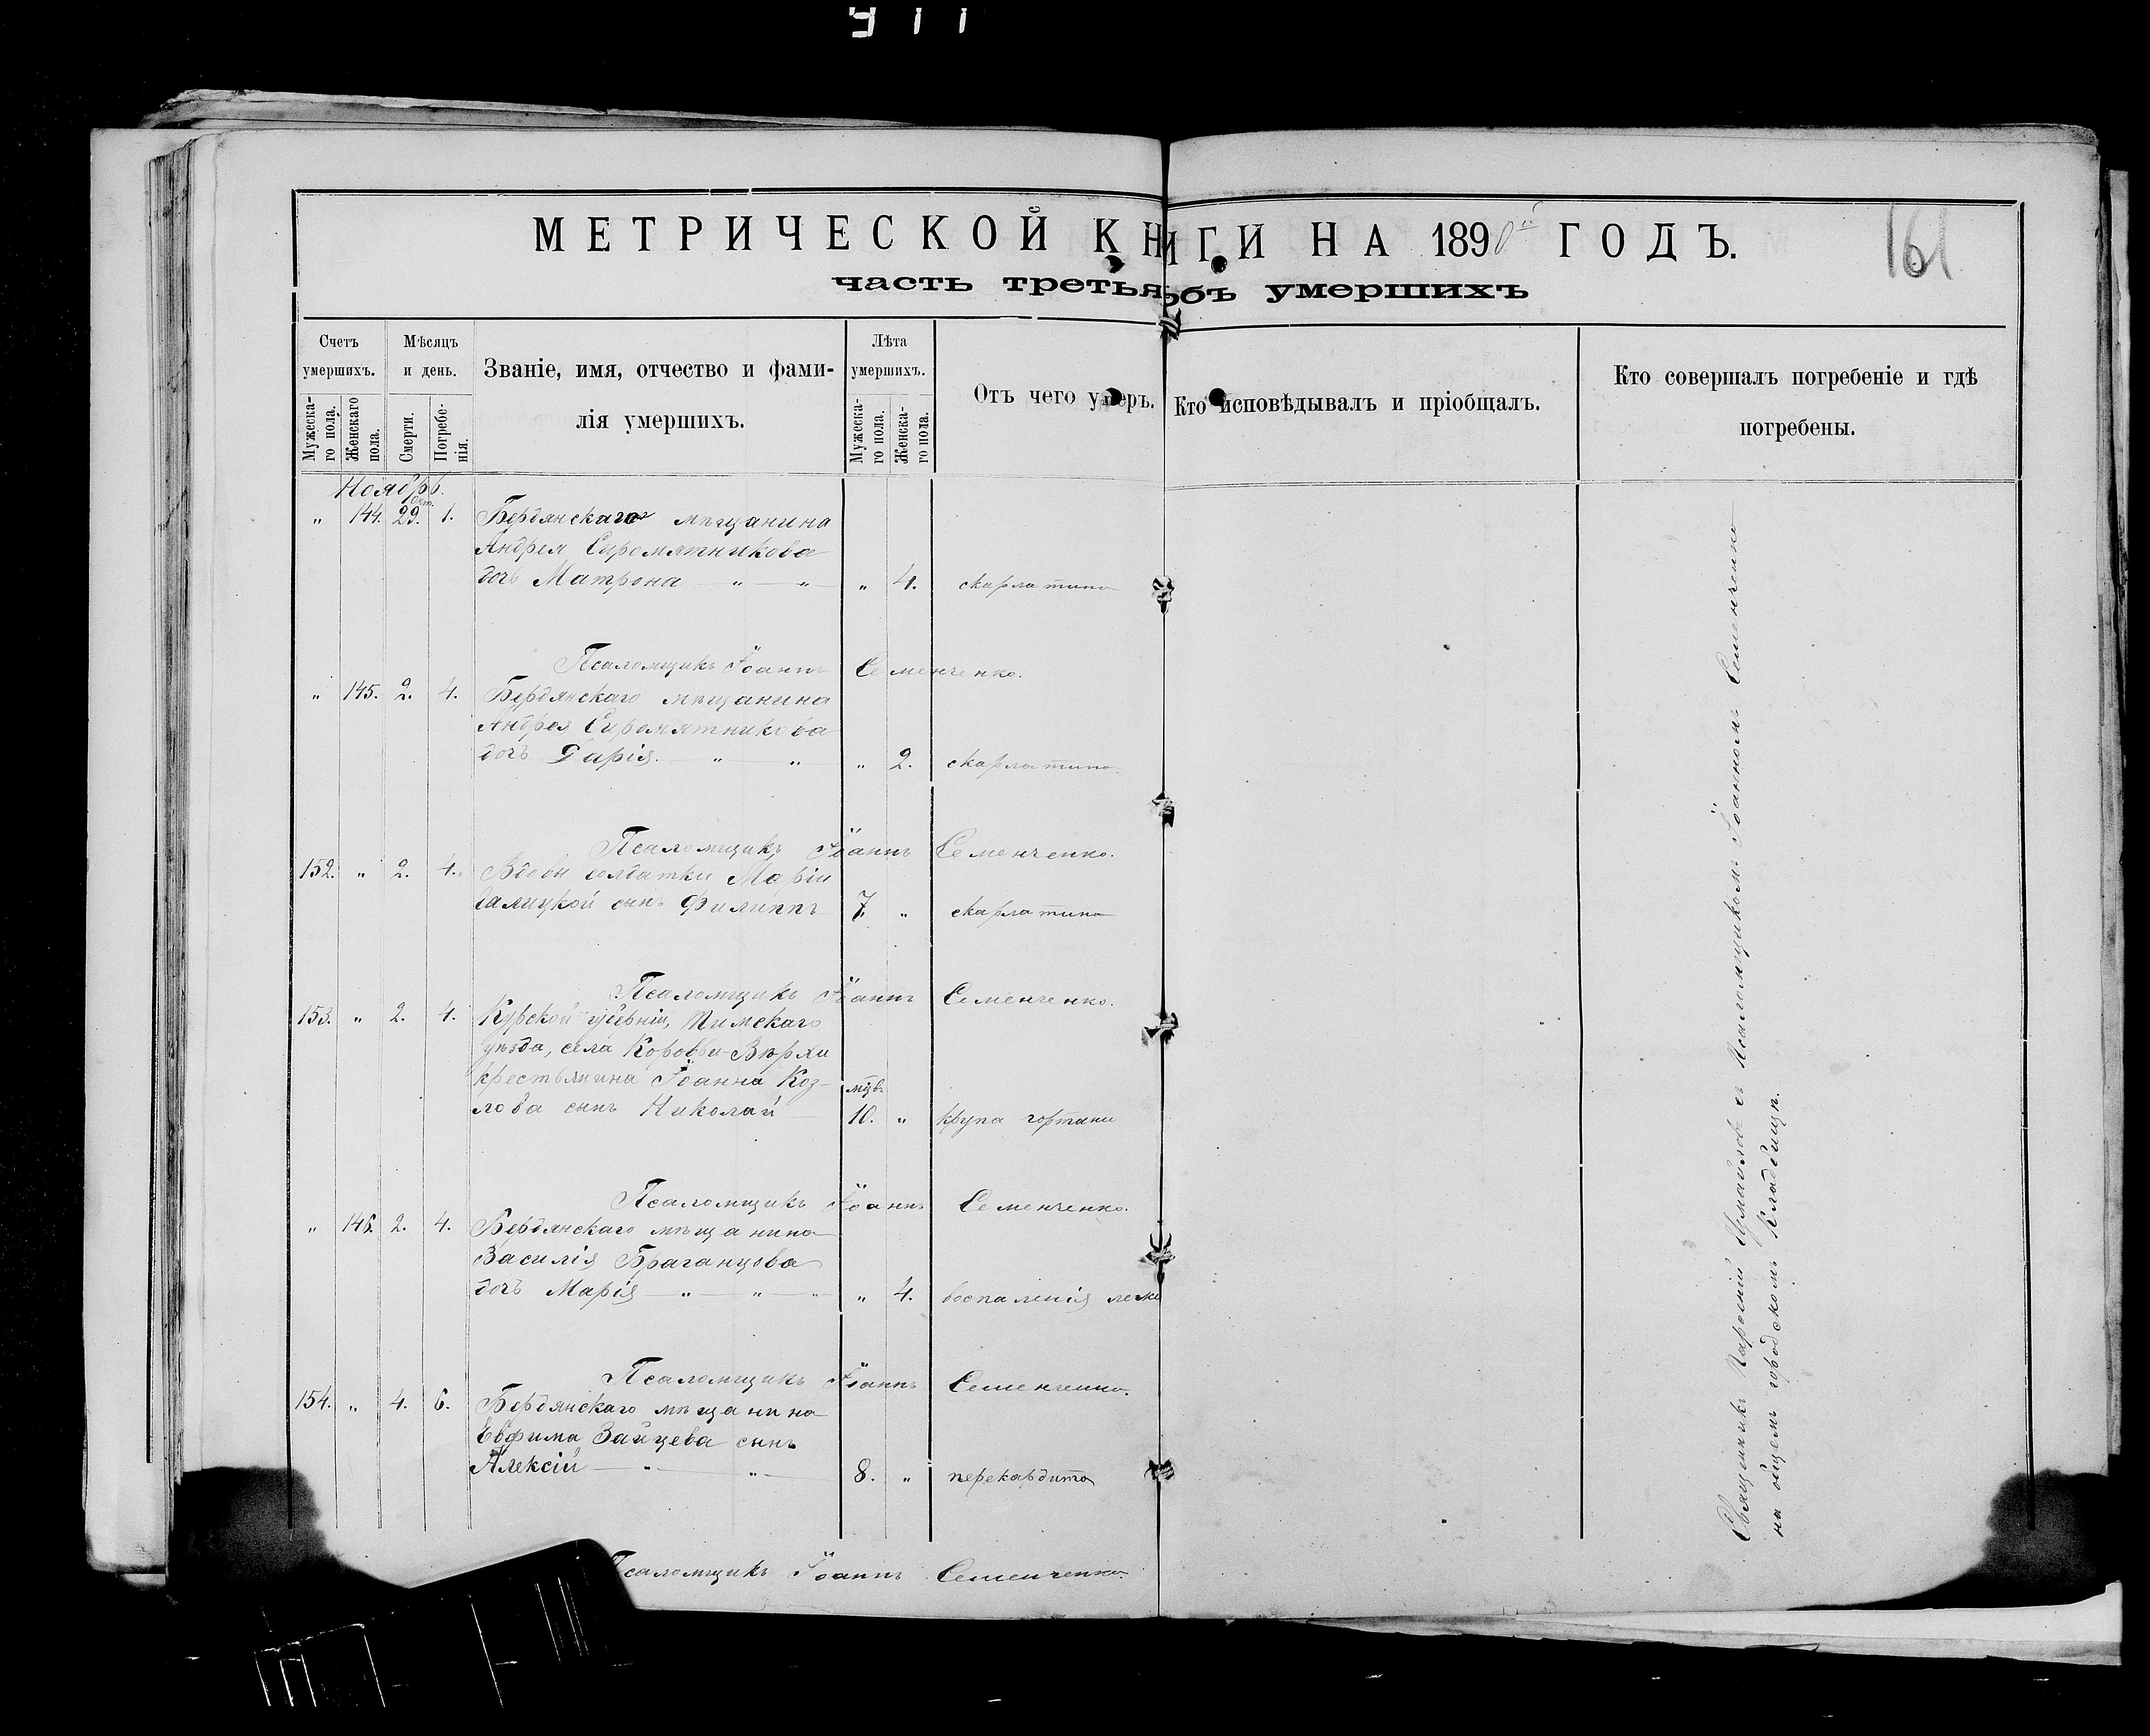 МЕТРИЧЕСКОЙ КНИГИ НА 1890й ГОДЪ.
161
часть третья объ умершихъ
Счетъ умершихъ.
Мѣсяцъ и день.
Званіе, имя, отчество и фами-
лія умершихъ.
Лѣта умершихъ.
Отъ чего умеръ.
Кто исповѣдывалъ и пріобщалъ.
Кто совершалъ погребеніе и гдѣ
погребены.
Мужеска-
го пола.
Женскаго
пола.
Смерти.
Погребе-
нія.
Мужеска-
го пола.
Женска-
го пола.
Ноябрь.
Окт.
„ 144. 29. 1. Бердянскаго мѣщанина
Андрея Сиромятникова
дочь Матрона — „ — „ — „ 4. скарлатина
Псаломщикъ Іоаннъ Семенченко.
„ 145. 2. 4. Бердянскаго мѣщанина
Андрея Сиромятникова
дочь Дарія. — „ — „ — „ 2. скарлатина.
Псаломщикъ Іоаннъ Семенченко.
152. „ 2. 4. Вдовы солдатки Маріи
Галицкой сынъ Филиппъ 7. „ скарлатина
Псаломщикъ Іоаннъ Семенченко.
153. „ 2. 4. Курской губерніи, Тимскаго
уѣзда, села Коровьи-Верхи
крестьянина Іоанна Коз-
лова сынъ Николай мцвъ 10. „ крупа гортани
Псаломщикъ Іоаннъ Семенченко.
„ 146. 2. 4. Бердянскаго мѣщанина
Василія Браганцова
дочь Марія — „ — „ — „ „ 4. воспаленія легк
Псаломщикъ Іоаннъ Семенченко.
154. „ 4. 6. Бердянскаго мѣщанина
Евфима Зайцева сынъ
Алексій — „ — „ — 8. „ перекардита
Псаломщикъ Іоаннъ Семенченко.
Священникъ съ Псаломщикомъ Іоанномъ Семенченко
на общемъ городскомъ кладбищѣ.